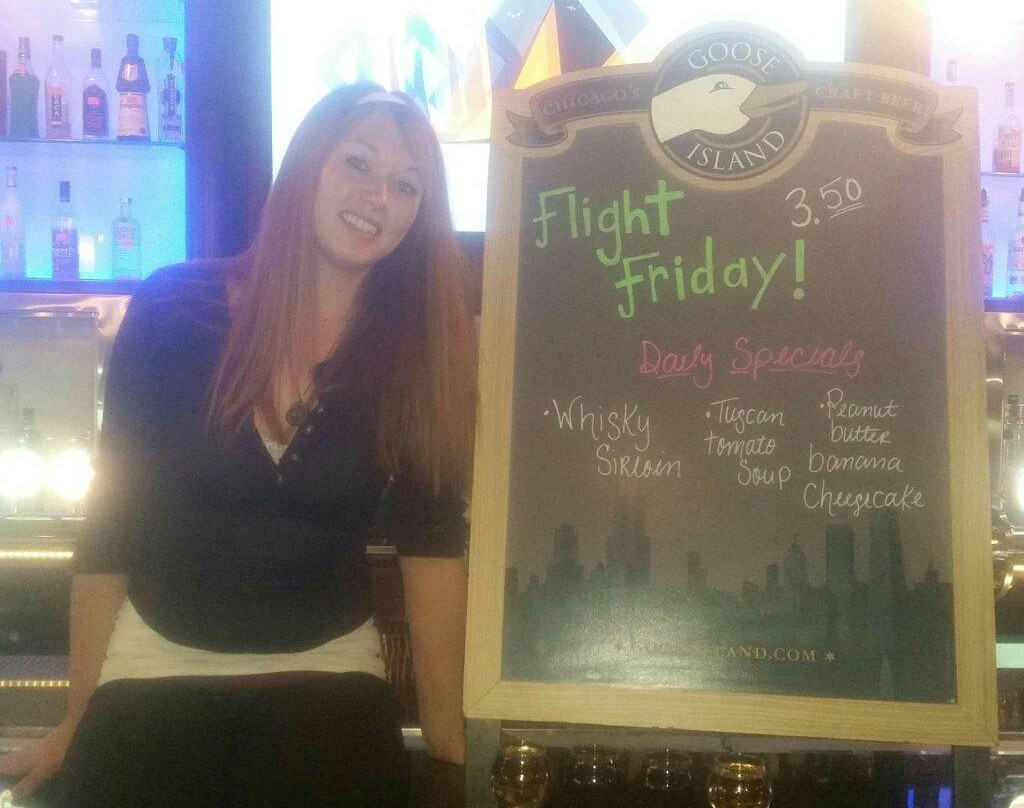 GOOSE
CHICAGO'S CRAFT BEER
ISLAND
Flight 3.50
Friday!
Daily Specials
·Whisky
Sirloin
·Tuscan
tomato
Soup
·Peanut
butter
banana
Cheesecake